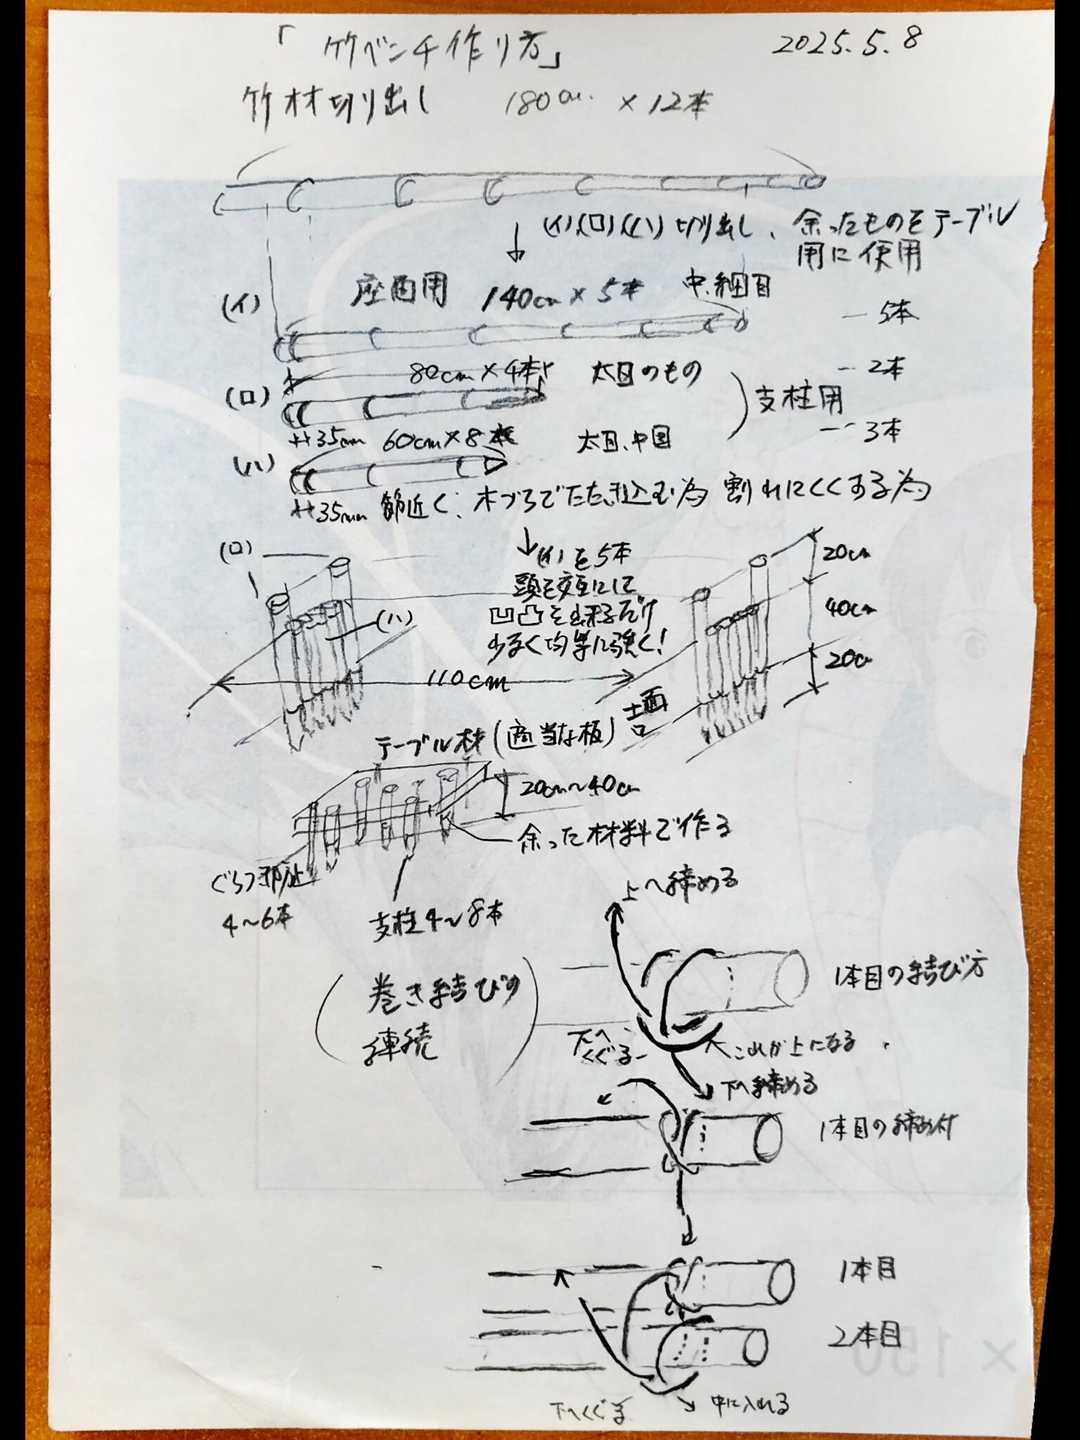 「竹ベンチ作り方」
2025.5.8
竹材切り出し 180cm × 12本
(イ)(ロ)(ハ)切り出し、余ったものをテーブル
用に使用
(イ) 座面用 140cm × 5本 中、細目
— 5本
(ロ) 80cm × 4本 太目のもの
— 2本
支柱用
(ハ) 35mm 60cm × 8本 太目、中目
— 3本
35mm 節近く: 木づちでたたき込む為 割れにくくする為
(ロ)
(ハ)
(イ)を5本
頭を交互にして
凹凸を出来るだけ
少なく均等に強く!
20cm
40cm
20cm
110cm
土面
テーブル材(適当な板)
20cm~40cm
余った材料で作る
ぐらつき防止
4~6本
支柱4~8本
(巻き結びの
連続)
上へ締める
1本目の結び方
下へ
くぐる
これが上になる
下へ締める
1本目の締め付
1本目
2本目
下へくぐる
中に入れる
× 150